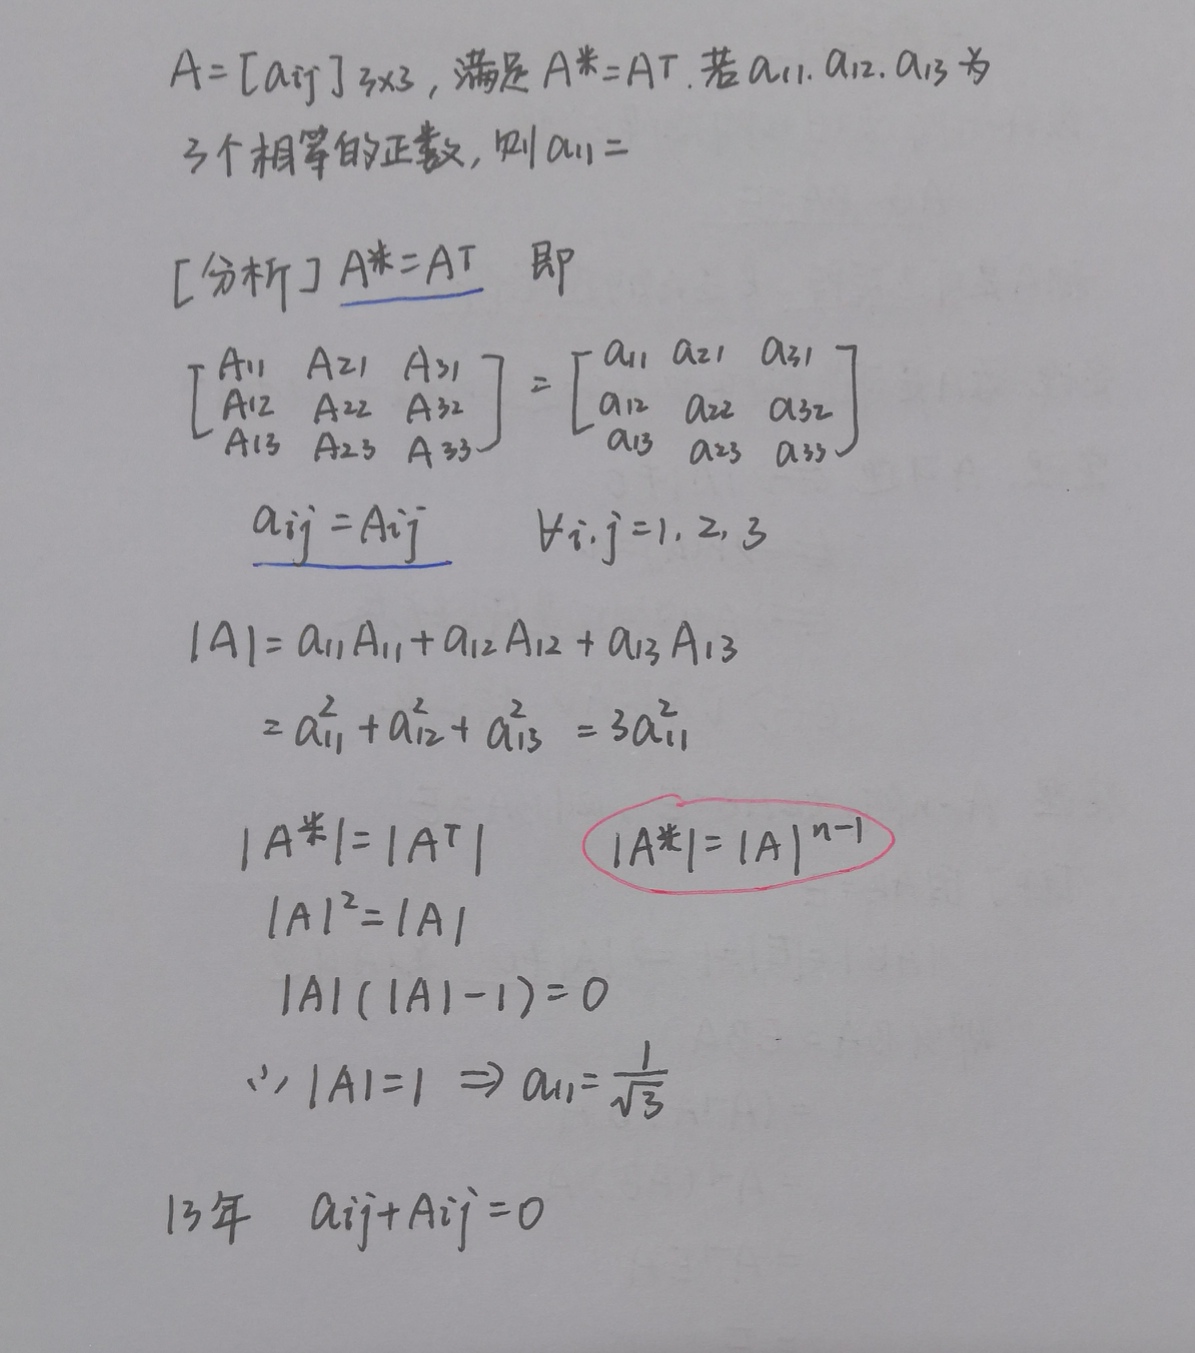 A=[aij]3×3,满足A*=AT.若a11.a12.a13为
3个相等的正数,则a11=
[分析]A*=Aᵀ 即
[A11 A21 A31
A12 A22 A32
A13 A23 A33] = [a11 a21 a31
a12 a22 a32
a13 a23 a33]
aij=Aij ∀i.j=1.2.3
|A|=a11A11+a12A12+a13A13
=a11²+a12²+a13²=3a11²
|A*|=|Aᵀ| |A*|=|A|ⁿ⁻¹
|A|²=|A|
|A|(|A|-1)=0
∴|A|=1⇒a11=1/√3
13年 aij+Aij=0